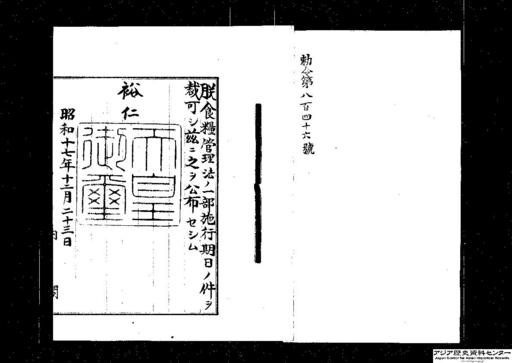 勅令第八百四十六號
朕食糧管理法ノ一部施行期日ノ件ヲ
裁可シ茲ニ之ヲ公布セシム
裕仁
天皇
御璽
昭和十七年十二月二十三日
内閣
アジア歴史資料センター
Japan Center for Asian Historical Records